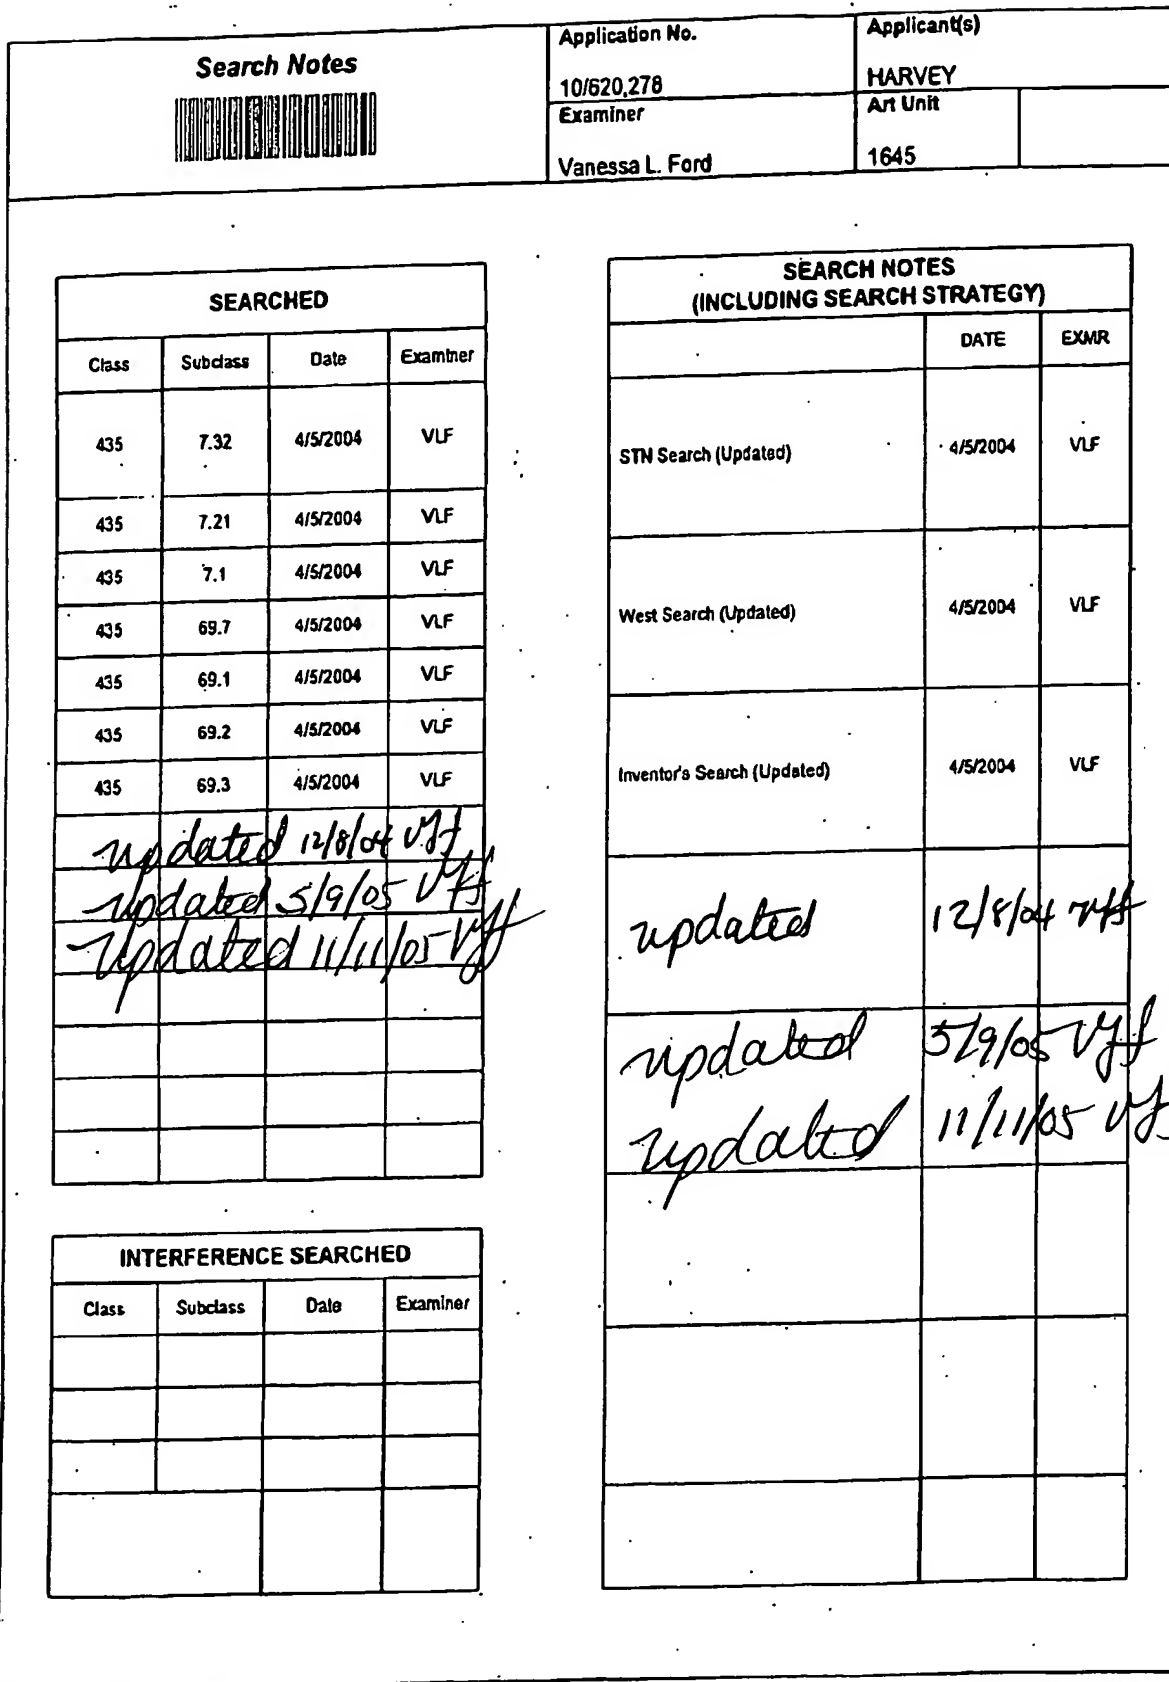 Search Notes
Application No.
10/620,278
Applicant(s)
HARVEY
Examiner
Vanessa L. Ford
Art Unit
1645
SEARCHED
Class Subclass Date Examiner
435 7.32 4/5/2004 VLF
435 7.21 4/5/2004 VLF
435 7.1 4/5/2004 VLF
435 69.7 4/5/2004 VLF
435 69.1 4/5/2004 VLF
435 69.2 4/5/2004 VLF
435 69.3 4/5/2004 VLF
updated 12/8/04 vlf
updated 5/9/05 vlf
updated 11/11/05 vlf
INTERFERENCE SEARCHED
Class Subclass Date Examiner
SEARCH NOTES
(INCLUDING SEARCH STRATEGY)
DATE EXMR
STN Search (Updated) 4/5/2004 VLF
West Search (Updated) 4/5/2004 VLF
Inventor's Search (Updated) 4/5/2004 VLF
updated 12/8/04 vlf
updated 5/9/05 vlf
updated 11/11/05 vlf